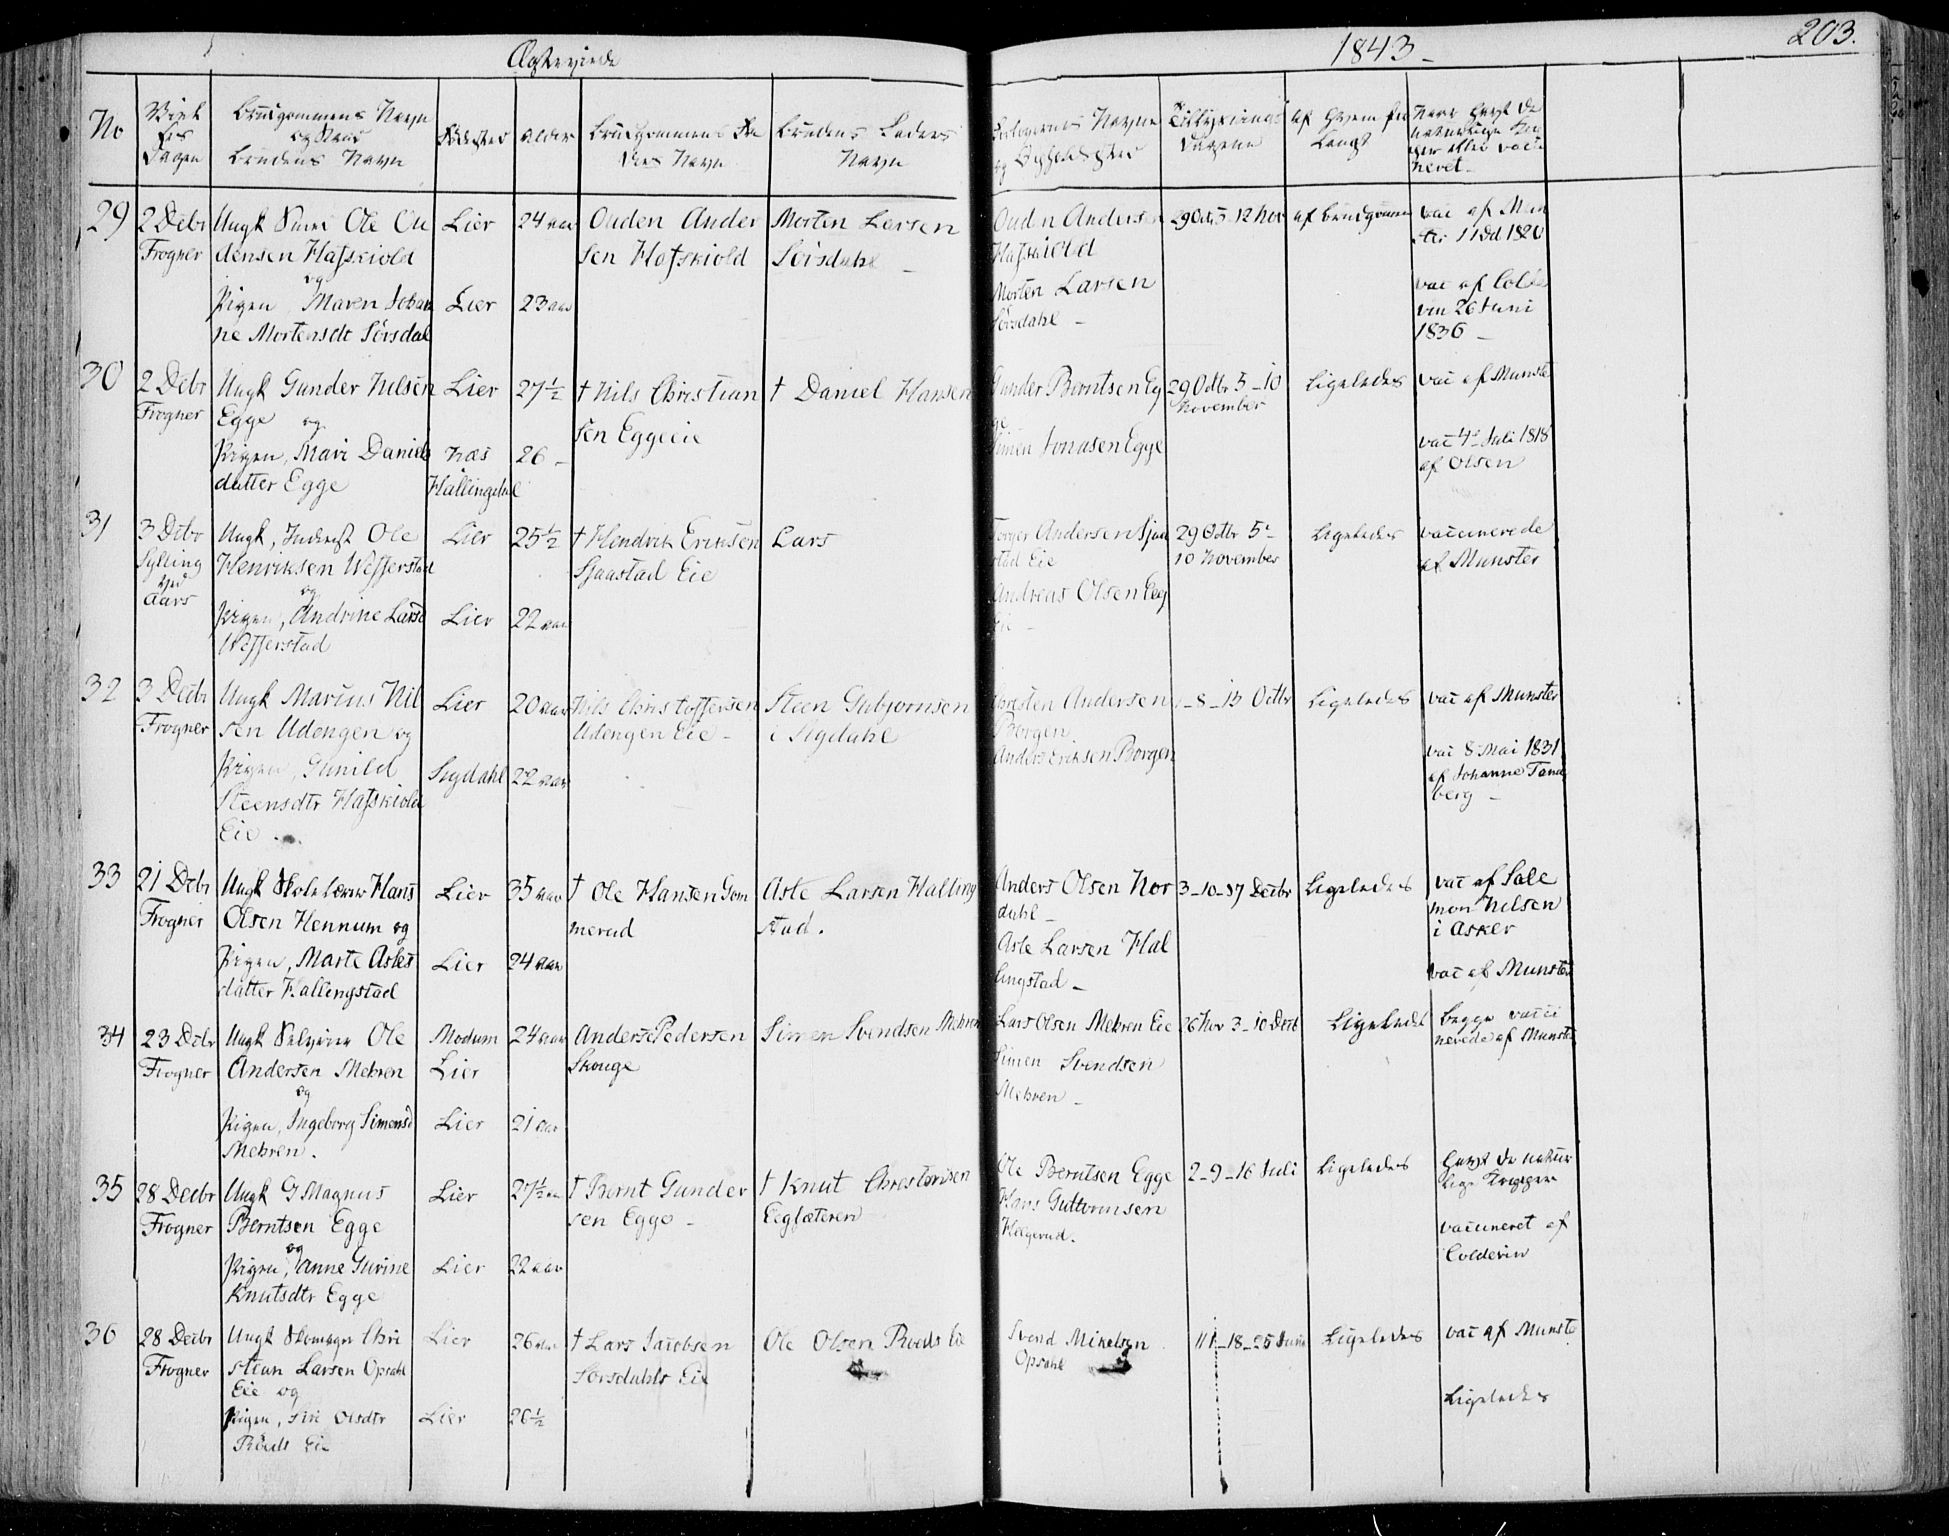 Ægteviede
1843
203.
No
Brudgommens Navn
Brudens Navn
Fødested
Alder
Navn
29
2 Decbr
Frogner
Ungk
Ole Ou
densen Hafskiold
og
Pigen, Maren Johan
ne Mortensdt Sørsdal
Lier
Lier
24 aar
23 aar
Ouden Ander
sen Hafskiold
Morten Larsen
Sørsdahl
Ouden Andersen
Hafskiold
Morten Larsen
Sørsdahl
29 Octb 5 - 12 Nov
af Brudgommen
vac af Mun
ster 11 Od 1820
vac af Colde
vin 26 Juni
1836
30
2 Decbr
Frogner
Ungk Gunder Nilsen
Egge og
Pigen, Mari Daniels
datter Egge
Lier
Næs
Hallingdal
27 1/2
26
† Nils Christian
sen Eggeeie
† Daniel Hansen
Gunder Berntsen Eg
ge
Simen Jonasen Egge
29 Octbr 5 - 10
November
Ligeledes
vac af Munster
vac 4de Juli 1818
af Olsen
31
3 Decbr
Sylling
ved
Aars
Ungk, Inderst Ole
Henriksen Wefferstad
og
Pigen, Andrine Larsd
Wefferstad
Lier
Lier
25 1/2
22 aar
† Hendrik Eriksen
Sjaastad Eie
Lars
Torger Andersen Sjaa
stad Eie
Andreas Olsen Egg
eie
29 Octbr 5-
10 November
Ligeledes
vaccinerede
af Munster
32
3 Decbr
Frogner
Ungk Marius Nil
sen Udengen og
Pigen, Gunild
Steensdtr Hafskiold
Eie
Lier
Sigdahl
20 aar
22 aar
Nils Christoffersen
Udengen Eie
Steen Gubjørnsen
i Sigdahl
Christen Andersen
Borgen
Anders Eriksen Borgen
1 - 8 - 13 Octbr
Ligeledes
vac af Munster
vac 8 Mai 1831
af Johanne Tand
berg
33
21 Decbr
Frogner
Ungk Skolelærer Hans
Olsen Hennum og
Pigen, Marte Asles
datter Hallingstad
Lier
Lier
35 aar
24 aar
† Ole Hansen Gom
merud
Asle Larsen Halling
stad.
Anders Olsen Nor
dahl
Asle Larsen Hal
lingstad
3 - 10 - 17 Decbr
Ligeledes
vac af Salo
mon Nilsen
i Asker
vac af Munster
34
23 Decbr
Frogner
Ungk Selveier Ole
Andersen Mehren
og
Pigen, Ingeborg Simensd
Mehren.
Modum
Lier
Lier
24 aar
21 aar
Anders Pedersen
Skouge
Simen Svendsen Mehren
Lars Olsen Mehren Eie
Simen Svendsen
Mehren
26 Nov 3 - 10 Decb
Ligeledes
Begge vacci
nerede af Munster
35
28 Decbr
Frogner
Ungk G Magnus
Berntsen Egge
og
Pigen, Anne Gurine
Knutsdtr Egge
Lier
Lier
27 1/2 aar
22 aar
† Bernt Gunder
sen Egge
† Knut Christensen
Egsæteren
Ole Berntsen Egge
Hans Guttormsen
Helgerud.
2 - 9 - 16 Juli
Ligeledes
havt de natur
lige Kopper
vaccineret af
Colderin
36
28 Decbr
Frogner
Ungk Skomager Chri
stian Larsen Opsahl
Eie og
Pigen, Siri Olsdtr
Røeds Eie
Lier
Lier
26 aar
26 1/2
† Lars Jacobsen
Sørsdahls Eie
Ole Olsen Røeds Eie
Svend Mikelsen
Opsahl
11 - 18 - 25 Juni
Ligeledes
vac af Munster
Ligeledes